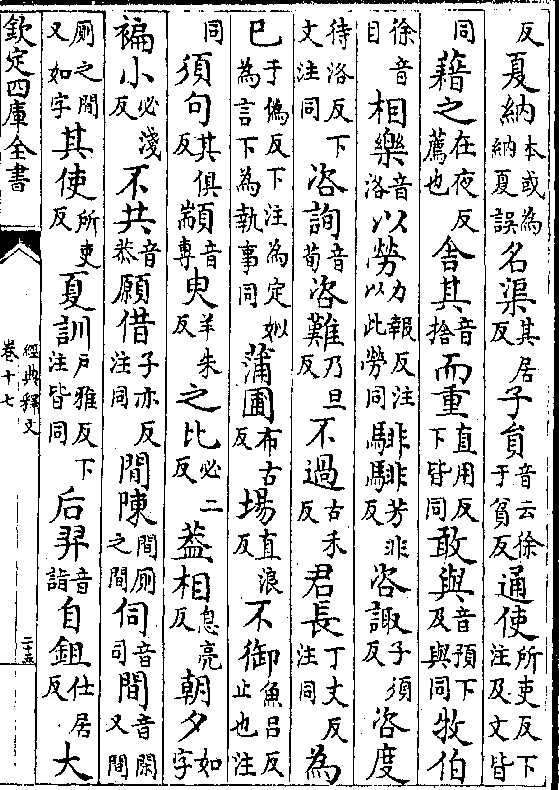 反夏納本或為納夏誤名渠其居反子員音云徐于貧反通使所吏反下注及文皆
同藉之在夜反薦也舍其音捨而重直用反下皆同敢與音預下及與同牧伯
徐音目相樂音洛以勞力報反注以此勞同騑騑芳非反咨諏子須反咨度
待洛反下文注同咨詢音荀咨難乃旦反不過古禾反君長丁丈反注同為
巳于偽反下注為定姒為言下為執事同蒲圃布古反場直浪反不御魚呂反止也注
同須句其俱反顓音專臾羊朱反之比必二反葢相息亮反朝夕如字
褊小必淺反不共音恭願借子亦反注同間陳間廁之間伺音司間音閑又間
廁之間又如字其使所吏反夏訓戶雅反下注皆同后羿音詣自鉏仕居反大
欽定四庫全書
經典釋文
卷十七
二十五